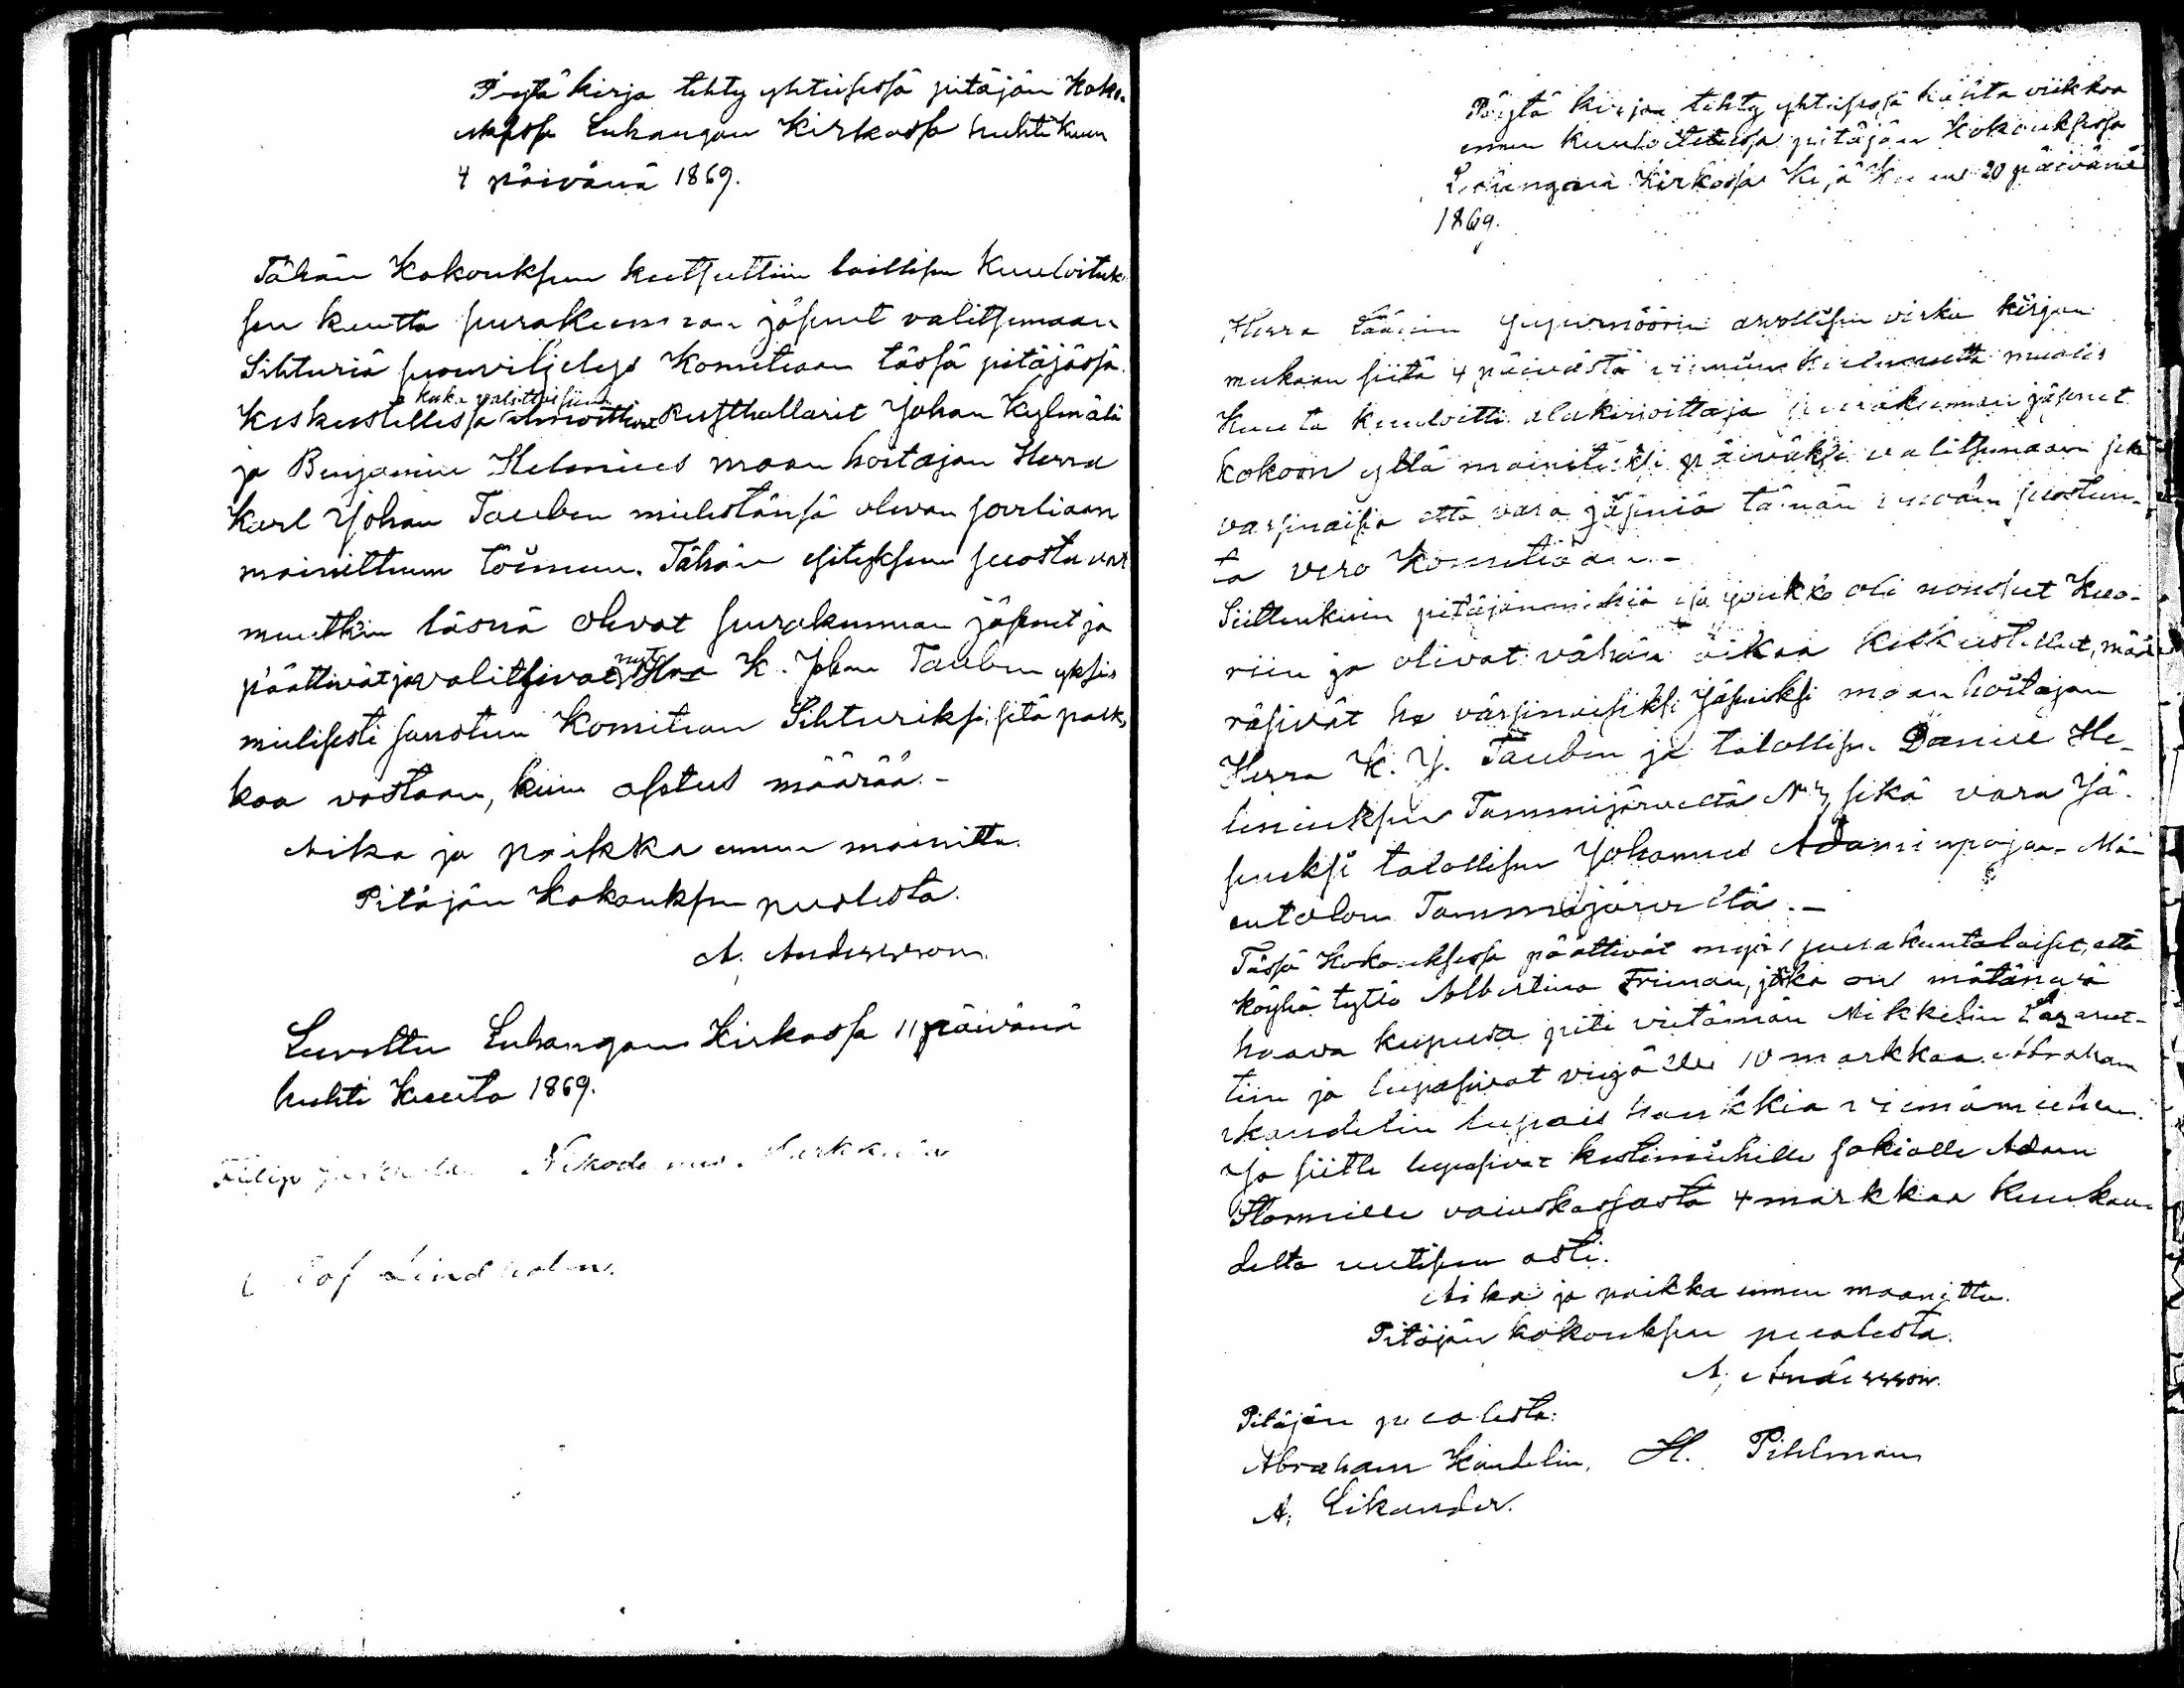 Pöytä kirja tehty yhteisessä pitäjän Koko-
uksessa Luhangan Kirkossa huhti Kuun
4 päivänä 1869.
Tähän Kokouksen kutsuttiin laillisen Kuuloituk-
sen kautta seurakunnan jäsenet valitsemaan
Sihturiä suoviljelys Komiteaan tässä pitäjässä.
kuka valittaisiin
Keskustellessa Rusthollarit Johan Kylmälä
ja Benjamin Helenius maan hoitajan Herra
Karl Johan Tauben mielestänsä olevan soveliaan
mainittuun toimeen. Tähän esityksen suostuvat
muutkin läsnä olevat seurakunnan jäsenet ja
päättivät ja valitsivat Hra K. Johan Tauben yksi-
mielisesti suostun Komitean Sihturiksi, sitä palk-
kaa vastaan, kuin asetus määrää.-
Aika ja paikka ennen mainittu.
Pitäjän Kokouksen puolesta.
A. Andersson
Luvettu Luhangan Kirkossa 11 päivänä
huhti Kuuta 1869.
Filip Nikodemus
Lindholm.
Pöytä kirja tehty yhteisessä kahta viikkoa
ennen kuuloitetussa pitäjän Kokouksessa
Luhangan Kirkossa Kesä Kuun 20 päivänä
1869.
Herra läänin guvernöörin arvollisen virka kirjan
mukaan siitä 4 päivästä viimeen kulunutta
Kuuta kuuloitti alakirjoittaja seurakunnan jäsenet
kokoon yllä mainituksi päiväksi valitsemaan sekä
varsinaisia että vara jäseniä tämän vuoden suostun-
ta vero Komiteaan.-
Siittenkuin pitäjänmiehiä iso joukko oli noussut Kuo-
riin ja olivat vähän aikaa keskustelleet, mää-
räsivät he varsinaisiksi jäseniksi maan hoitajan
Herra K. J. Tauben ja talollisen Daniel He-
leniuksen Tammijärveltä N:o 7, sekä vara Jä-
seneksi talollisen Johannes Adaminpojan Män-
entalon Tammijärveltä.-
Tässä Kokouksessa päättivät myös seurakuntalaiset, että
köyhä tyttö Albertina Friman, joka on mätänevä
haava kupusa piti vietämän Mikkelin Lazaret-
tiin ja lupasivat viejälle 10 markkaa. Abraham
Kandelin lupais hankkia viemämiehen.
Ja siitte lupasivat kestimiehille sokialle Adam
Stormille vaivaskassasta 4 markkaa Kuukau-
delta uutiseen asti.
Aika ja paikka ennen maanittu.
Pitäjän kokouksen puolesta.
A. Andersson.
Pitäjän puolesta:
Abraham Kandelin. H. Pihlman
A. Likander.